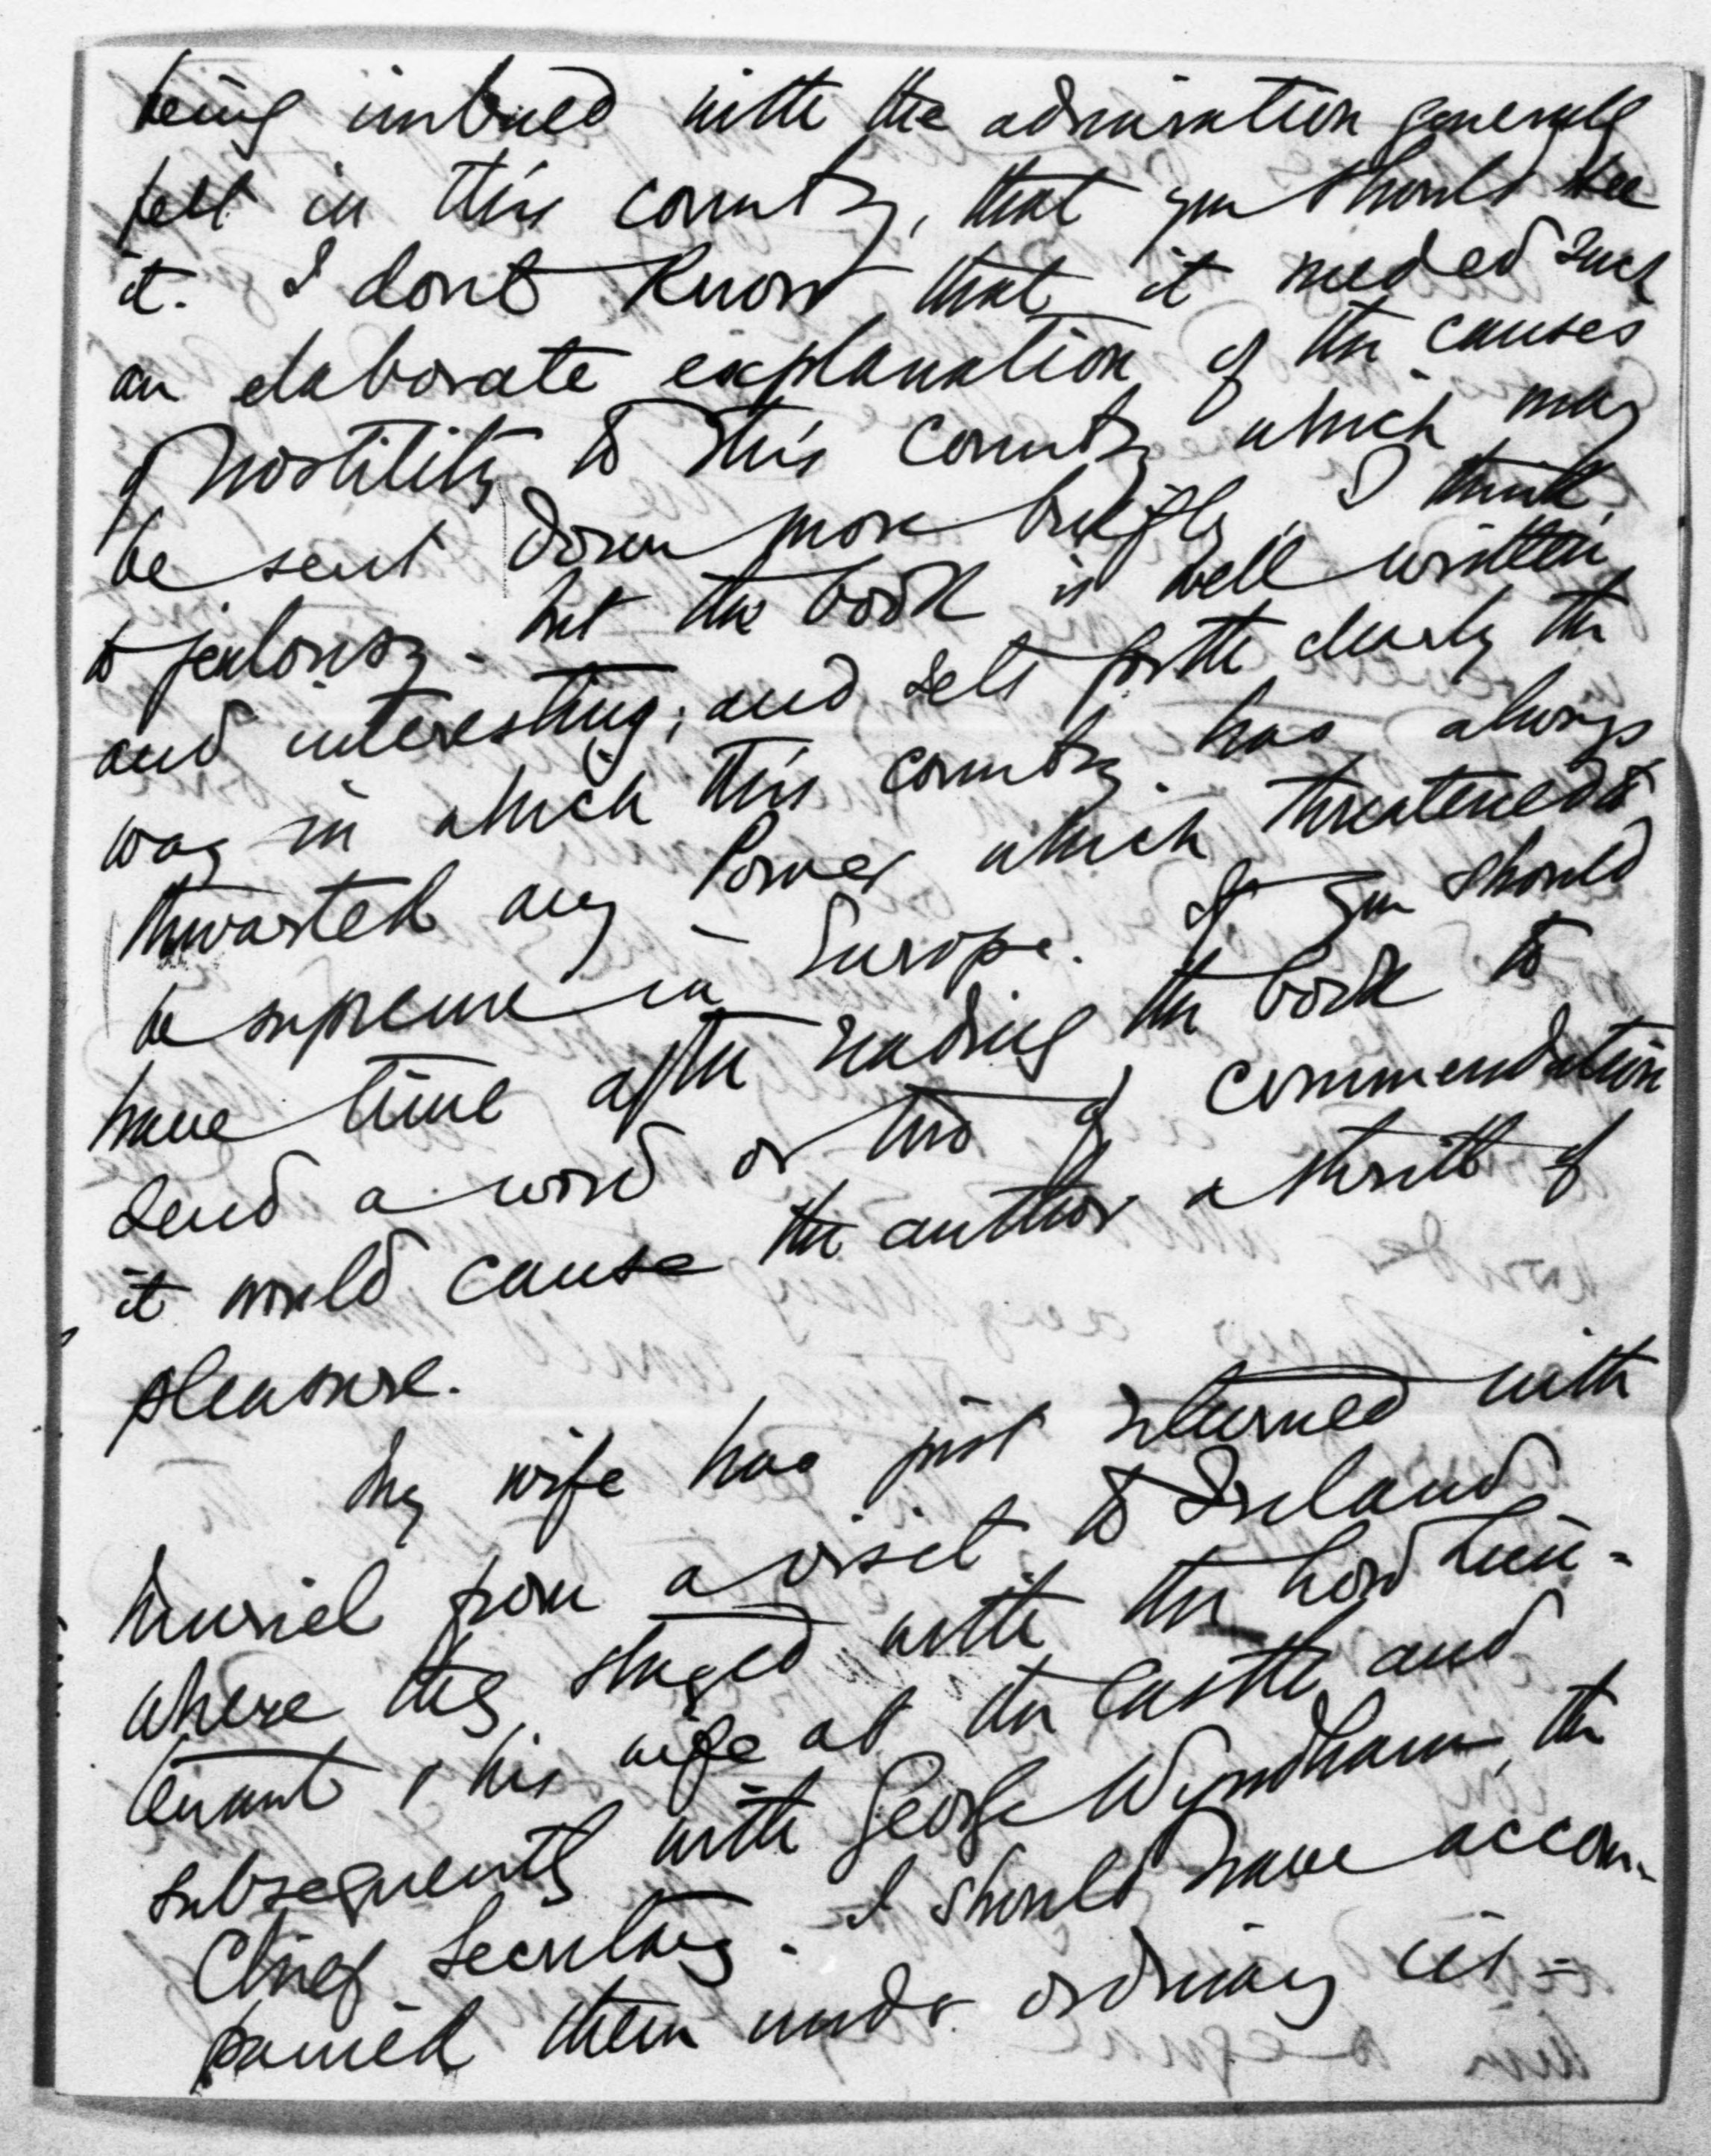 being imbued with the admiration generally
felt in this country, that you should see
it. I dont know that it needed such
an elaborate explanation of the causes
of hostility to this country which may
be sent down more briefly, I think,
to jealousy - but the book is well written
and interesting; and sets forth clearly the
way in which this country has always
thwarted any Power which threatened to
be supreme in Europe. If you should
have time after reading the book to
send a word or two of commendation
it would cause the author a thrill of
pleasure.
My wife has just returned with
Muriel from a visit to Ireland
where they stayed with the Lord Lieu=
tenant & his wife at the Castle and
subsequently with George Wyndham, the
Chief Secretary. I should have accom-
panied them under ordinary cir=